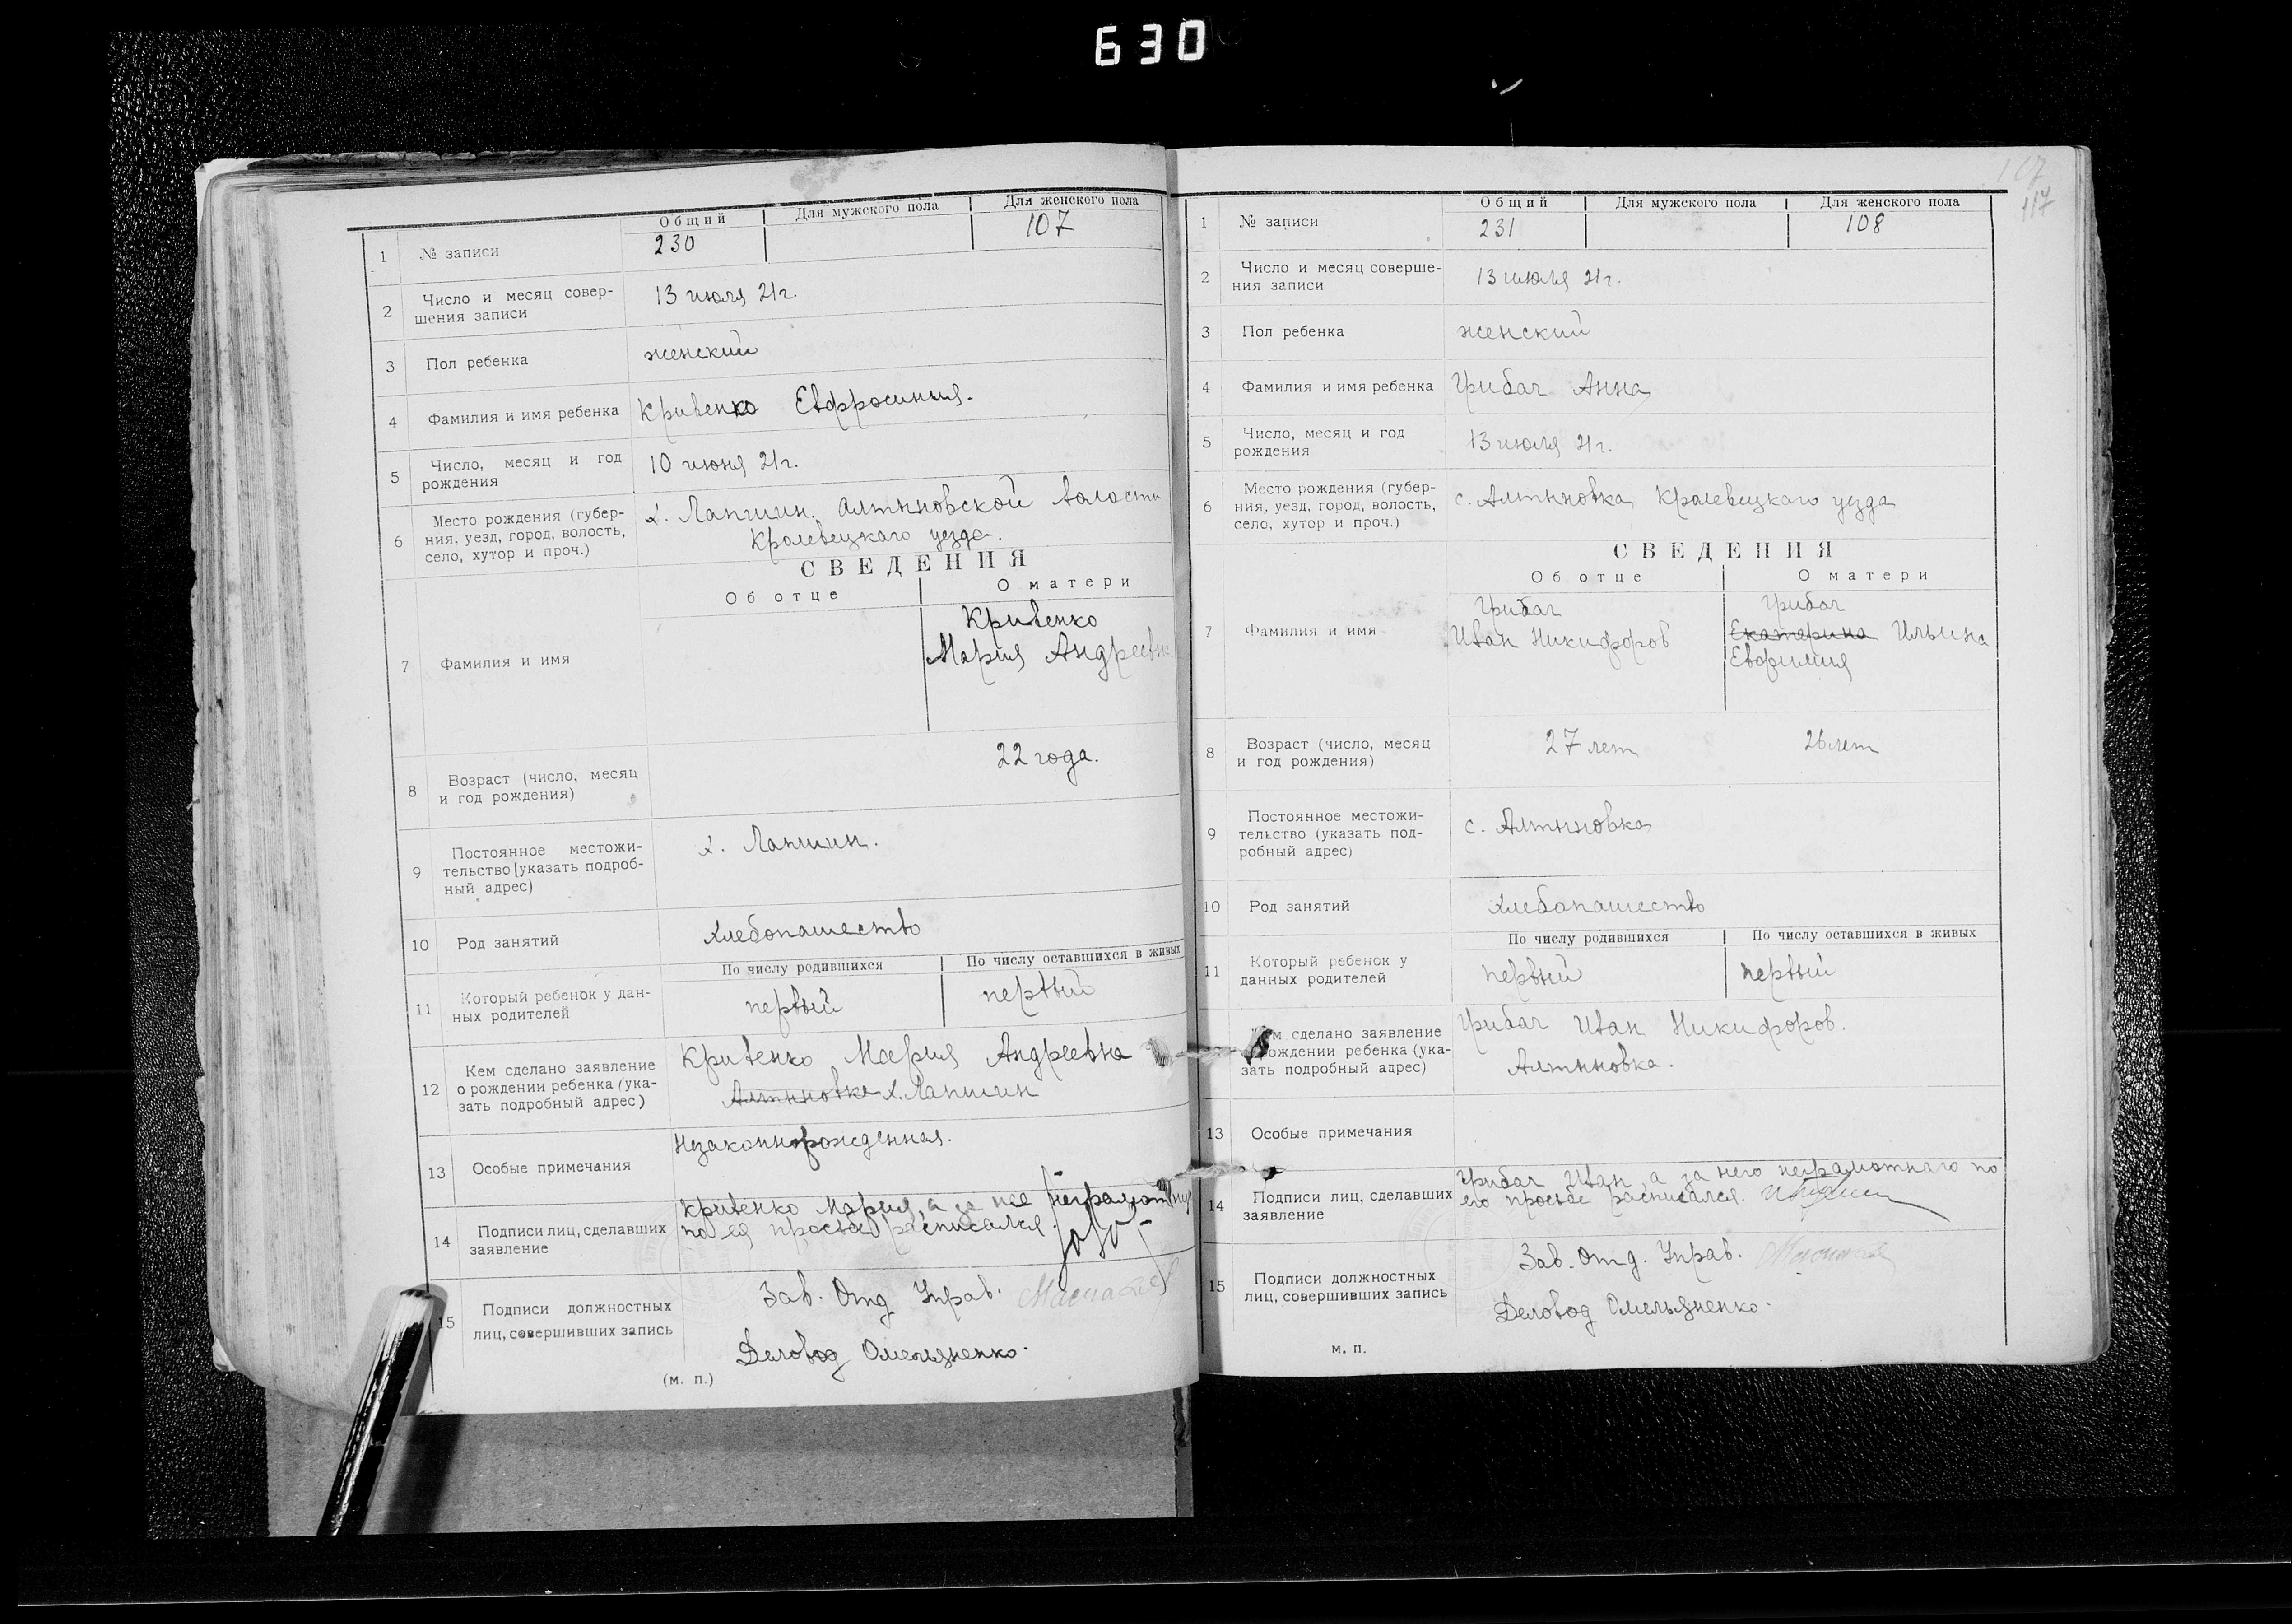 630
Общий Для мужского пола Для женского пола
1 № записи 230 107
2 Число и месяц совер-
шения записи 13 июля 21г.
3 Пол ребенка женский
4 Фамилия и имя ребенка Кривенко Евфросиния.
5 Число, месяц и год
рождения 10 июня 21г.
6 Место рождения (губер-
ния, уезд, город, волость,
село, хутор и проч.) х. Лапшин. Алтыновской волости
Кролевецкаго уезда.
СВЕДЕНИЯ
Об отце О матери
7 Фамилия и имя Кривенко
Мария Андреевна
8 Возраст (число, месяц
и год рождения) 22 года.
9 Постоянное местожи-
тельство [указать подроб-
ный адрес) х. Лапшин.
10 Род занятий Хлебопашество
По числу родившихся По числу оставшихся в живых
11 Который ребенок у дан-
ных родителей первый первый
12 Кем сделано заявление
о рождении ребенка (ука-
зать подробный адрес) Кривенко Мария Андреевна
Алтыновка х. Лапшин
13 Особые примечания Незаконнорожденная.
14 Подписи лиц, сделавших
заявление Кривенко Мария, а за нее неграмотную
по ея просьбе расписался
15 Подписи должностных
лиц, совершивших запись Зав. Отд Управ.
Деловод Омельяненко.
(м. п.)
107
117
Общий Для мужского пола Для женского пола
1 № записи 231 108
2 Число и месяц соверше-
ния записи 13 июля 21г.
3 Пол ребенка женский
4 Фамилия и имя ребенка Грибач Анна
5 Число, месяц и год
рождения 13 июля 21г.
6 Место рождения (губер-
ния, уезд, город, волость,
село, хутор и проч.) с. Алтыновка Кролевецкаго уезда
СВЕДЕНИЯ
Об отце О матери
7 Фамилия и имя Грибач Грибач
Иван Никифоров Екатерина Ильина
Евфимия
8 Возраст (число, месяц
и год рождения) 27 лет 26 лет
9 Постоянное местожи-
тельство (указать под-
робный адрес) с. Алтыновка
10 Род занятий Хлебопашество
По числу родившихся По числу оставшихся в живых
11 Который ребенок у
данных родителей первый первый
сделано заявление
рождении ребенка (ука-
зать подробный адрес) Грибач Иван Никифоров.
Алтыновка.
13 Особые примечания
14 Подписи лиц, сделавших
заявление Грибач Иван, а за него неграмотнаго по
его просьбе расписался.
15 Подписи должностных
лиц, совершивших запись Зав. Отд. Управ.
Деловод Омельяненко.
м. п.